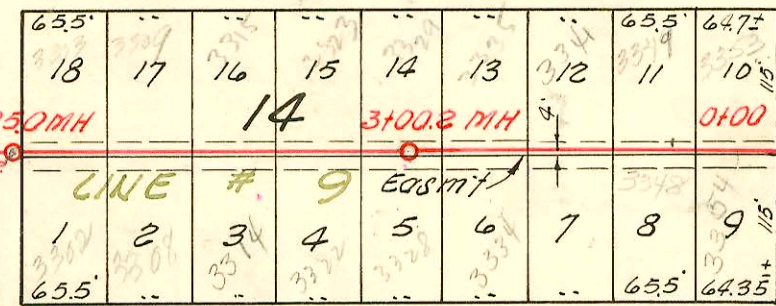 65.5' .. .. .. .. .. .. 65.5' 64.7±
3309 3315 3323 3329 3341 3349 3353
18 17 16 15 14 13 12 11 10 115'
14
5.0MH 3+00.2 MH 4' 0+00
LINE # 9 Easm't 3348
1 2 3 4 5 6 7 8 9 115'
3302 3308 3314 3322 3328 3334 3354
65.5' .. .. .. .. .. .. 65.5' 64.35±